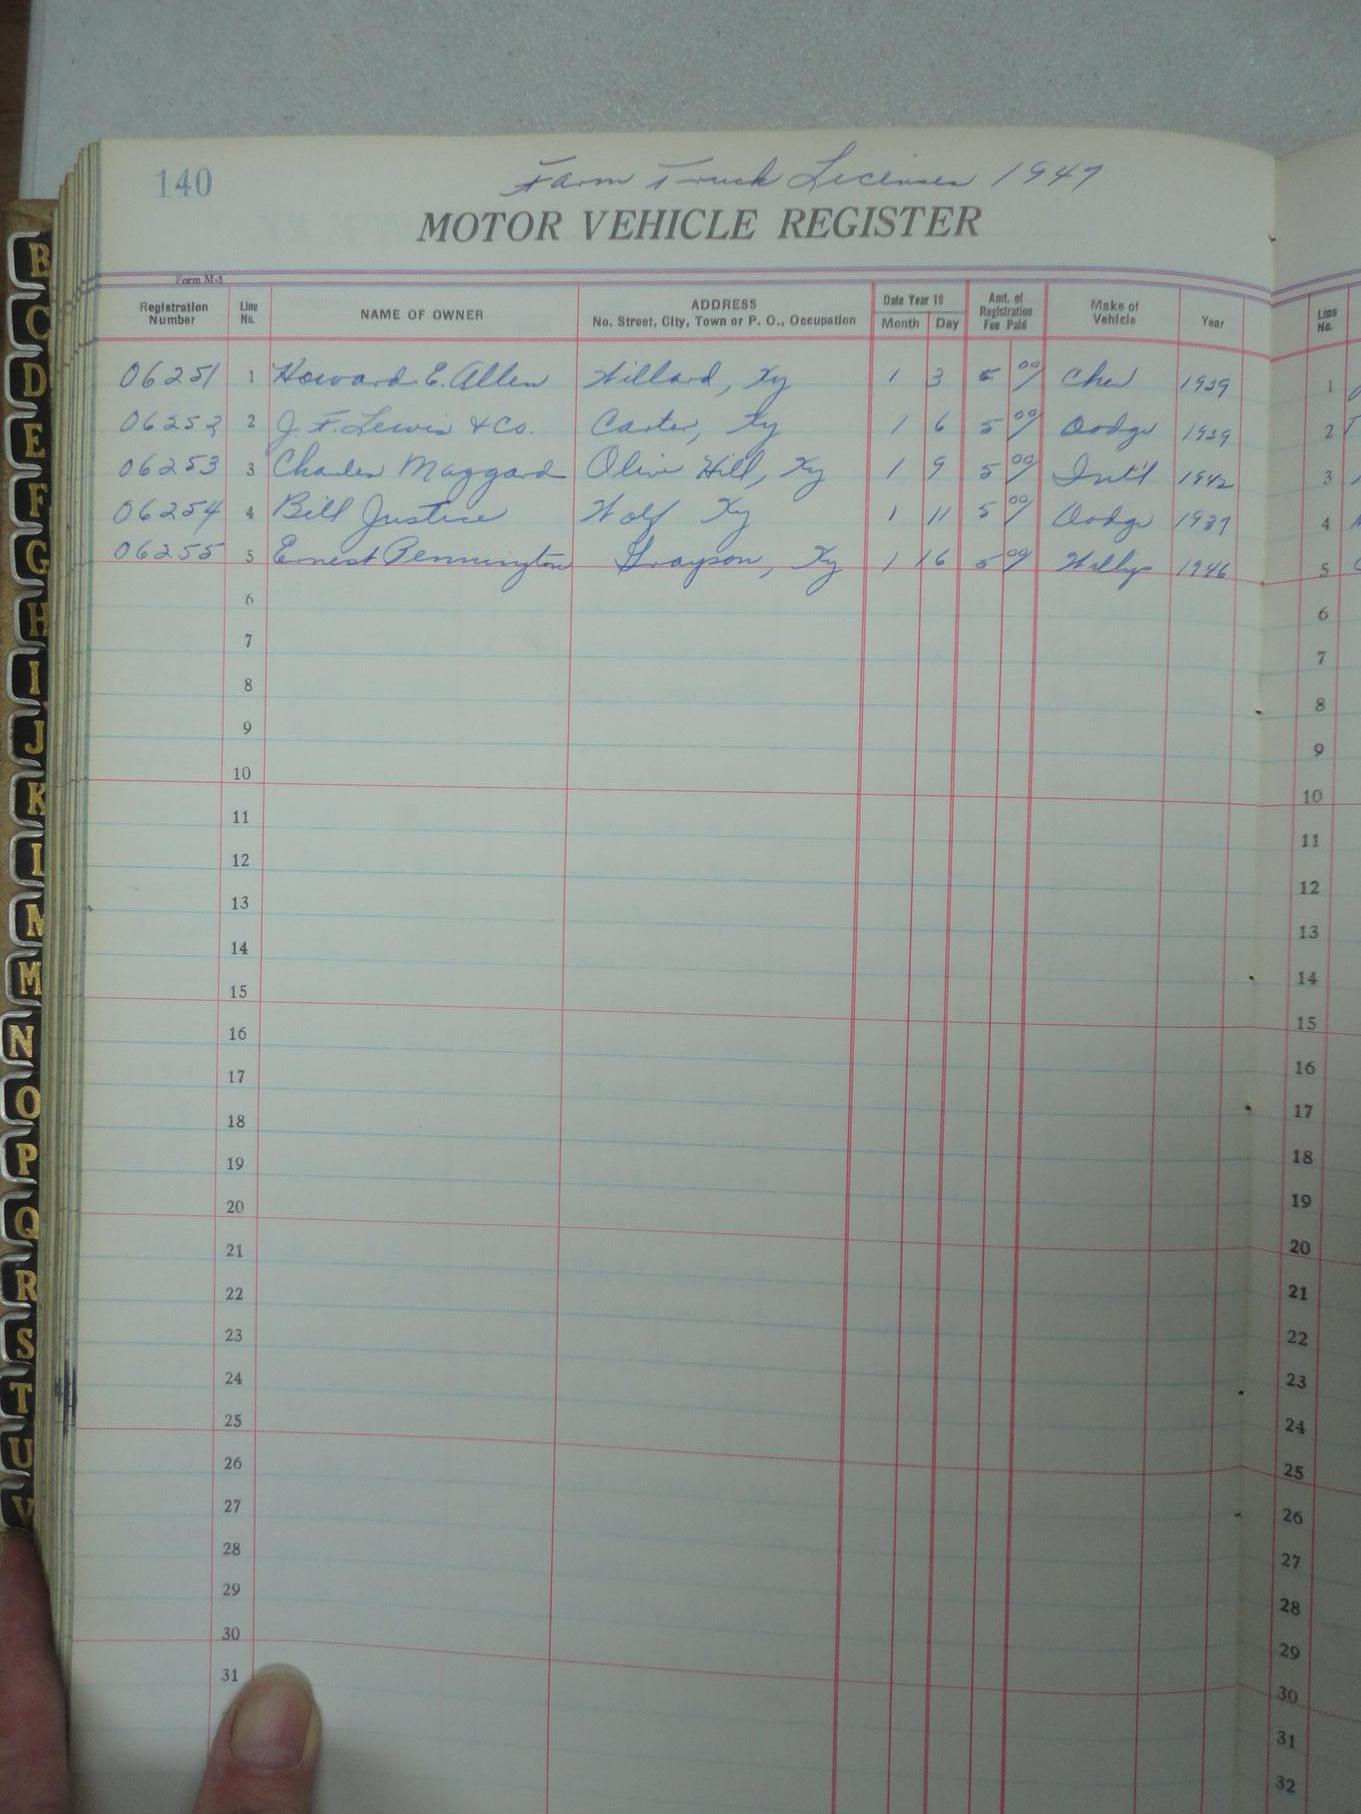 140
Farm Truck Licenses 1947
MOTOR VEHICLE REGISTER
Form M-3
Registration Number Line No. NAME OF OWNER ADDRESS No. Street, City, Town or P. O., Occupation Date Year 19 Month Day Amt. of Registration Fee Paid Make of Vehicle Year Line No.
06251 1 Howard E. Allen Willard, Ky 1 3 5 00 Chev 1939 1
06252 2 J. F. Lewis & Co. Carter, Ky 1 6 5 00 Dodge 1939 2
06253 3 Charles Maggard Olive Hill, Ky 1 9 5 00 Int'l 1942 3
06254 4 Bill Justice Wolf Ky 1 11 5 00 Dodge 1937 4
06255 5 Ernest Pennington Grayson, Ky 1 16 5 00 Willys 1946 5
6 6
7 7
8 8
9 9
10 10
11 11
12 12
13 13
14 14
15 15
16 16
17 17
18 18
19 19
20 20
21 21
22 22
23 23
24 24
25 25
26 26
27 27
28 28
29 29
30 30
31 31
32
B
C
D
E
F
G
H
I
J
K
L
M
M
N
O
P
Q
R
S
T
U
V